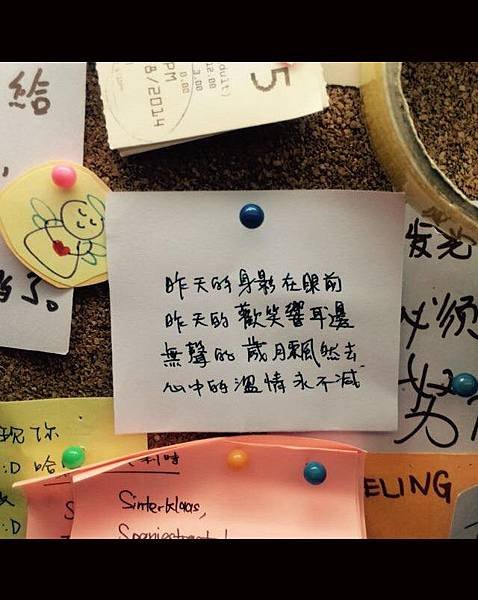 給
duit)
12.00
3.00
0.00
PM
/8/2014
5
了。
昨天的身影在眼前
昨天的歡笑響耳邊
無聲的歲月飄然去
心中的溫情永不減
发光
必须
男
现你
:D 哈
:D
Sinterklaas,
ELING